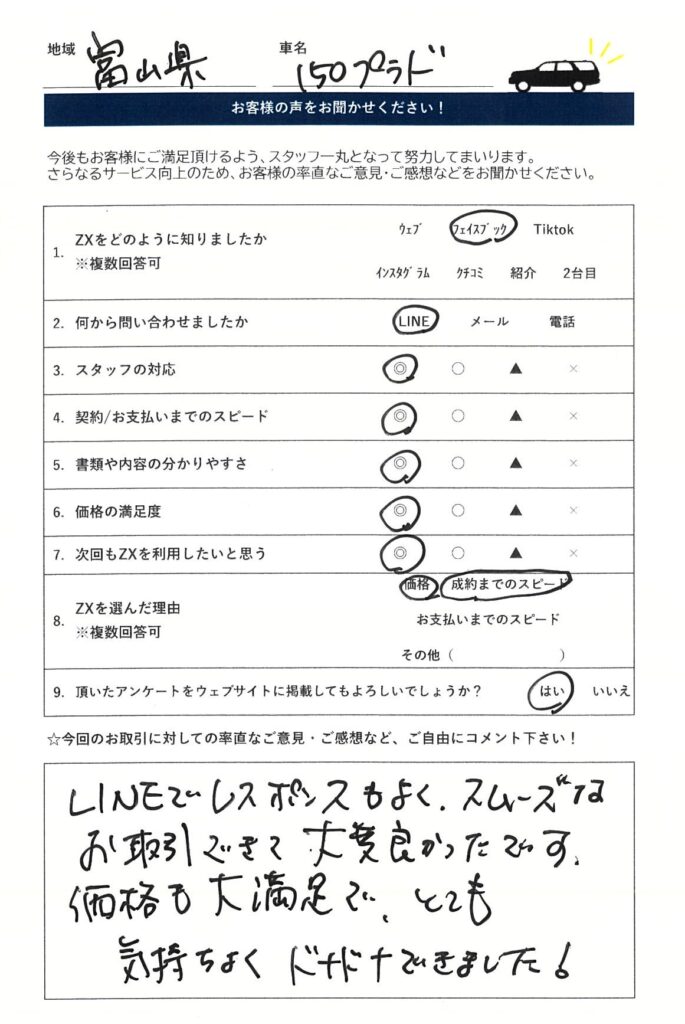 地域 富山県 車名 150プラド
お客様の声をお聞かせください!
今後もお客様にご満足頂けるよう、スタッフ一丸となって努力してまいります。
さらなるサービス向上のため、お客様の率直なご意見・ご感想などをお聞かせください。
1. ZXをどのように知りましたか ※複数回答可
ウェブ フェイスブック Tiktok
インスタグラム クチコミ 紹介 2台目
2. 何から問い合わせましたか LINE メール 電話
3. スタッフの対応 ◎ ○ ▲ ×
4. 契約/お支払いまでのスピード ◎ ○ ▲ ×
5. 書類や内容の分かりやすさ ◎ ○ ▲ ×
6. 価格の満足度 ◎ ○ ▲ ×
7. 次回もZXを利用したいと思う ◎ ○ ▲ ×
8. ZXを選んだ理由 ※複数回答可
価格 成約までのスピード
お支払いまでのスピード
その他( )
9. 頂いたアンケートをウェブサイトに掲載してもよろしいでしょうか? はい いいえ
☆今回のお取引に対しての率直なご意見・ご感想など、ご自由にコメント下さい!
LINEでレスポンスもよく、スムーズな
お取引できて大変良かったです、
価格も大満足で、とても
気持ちよくドナドナできました!